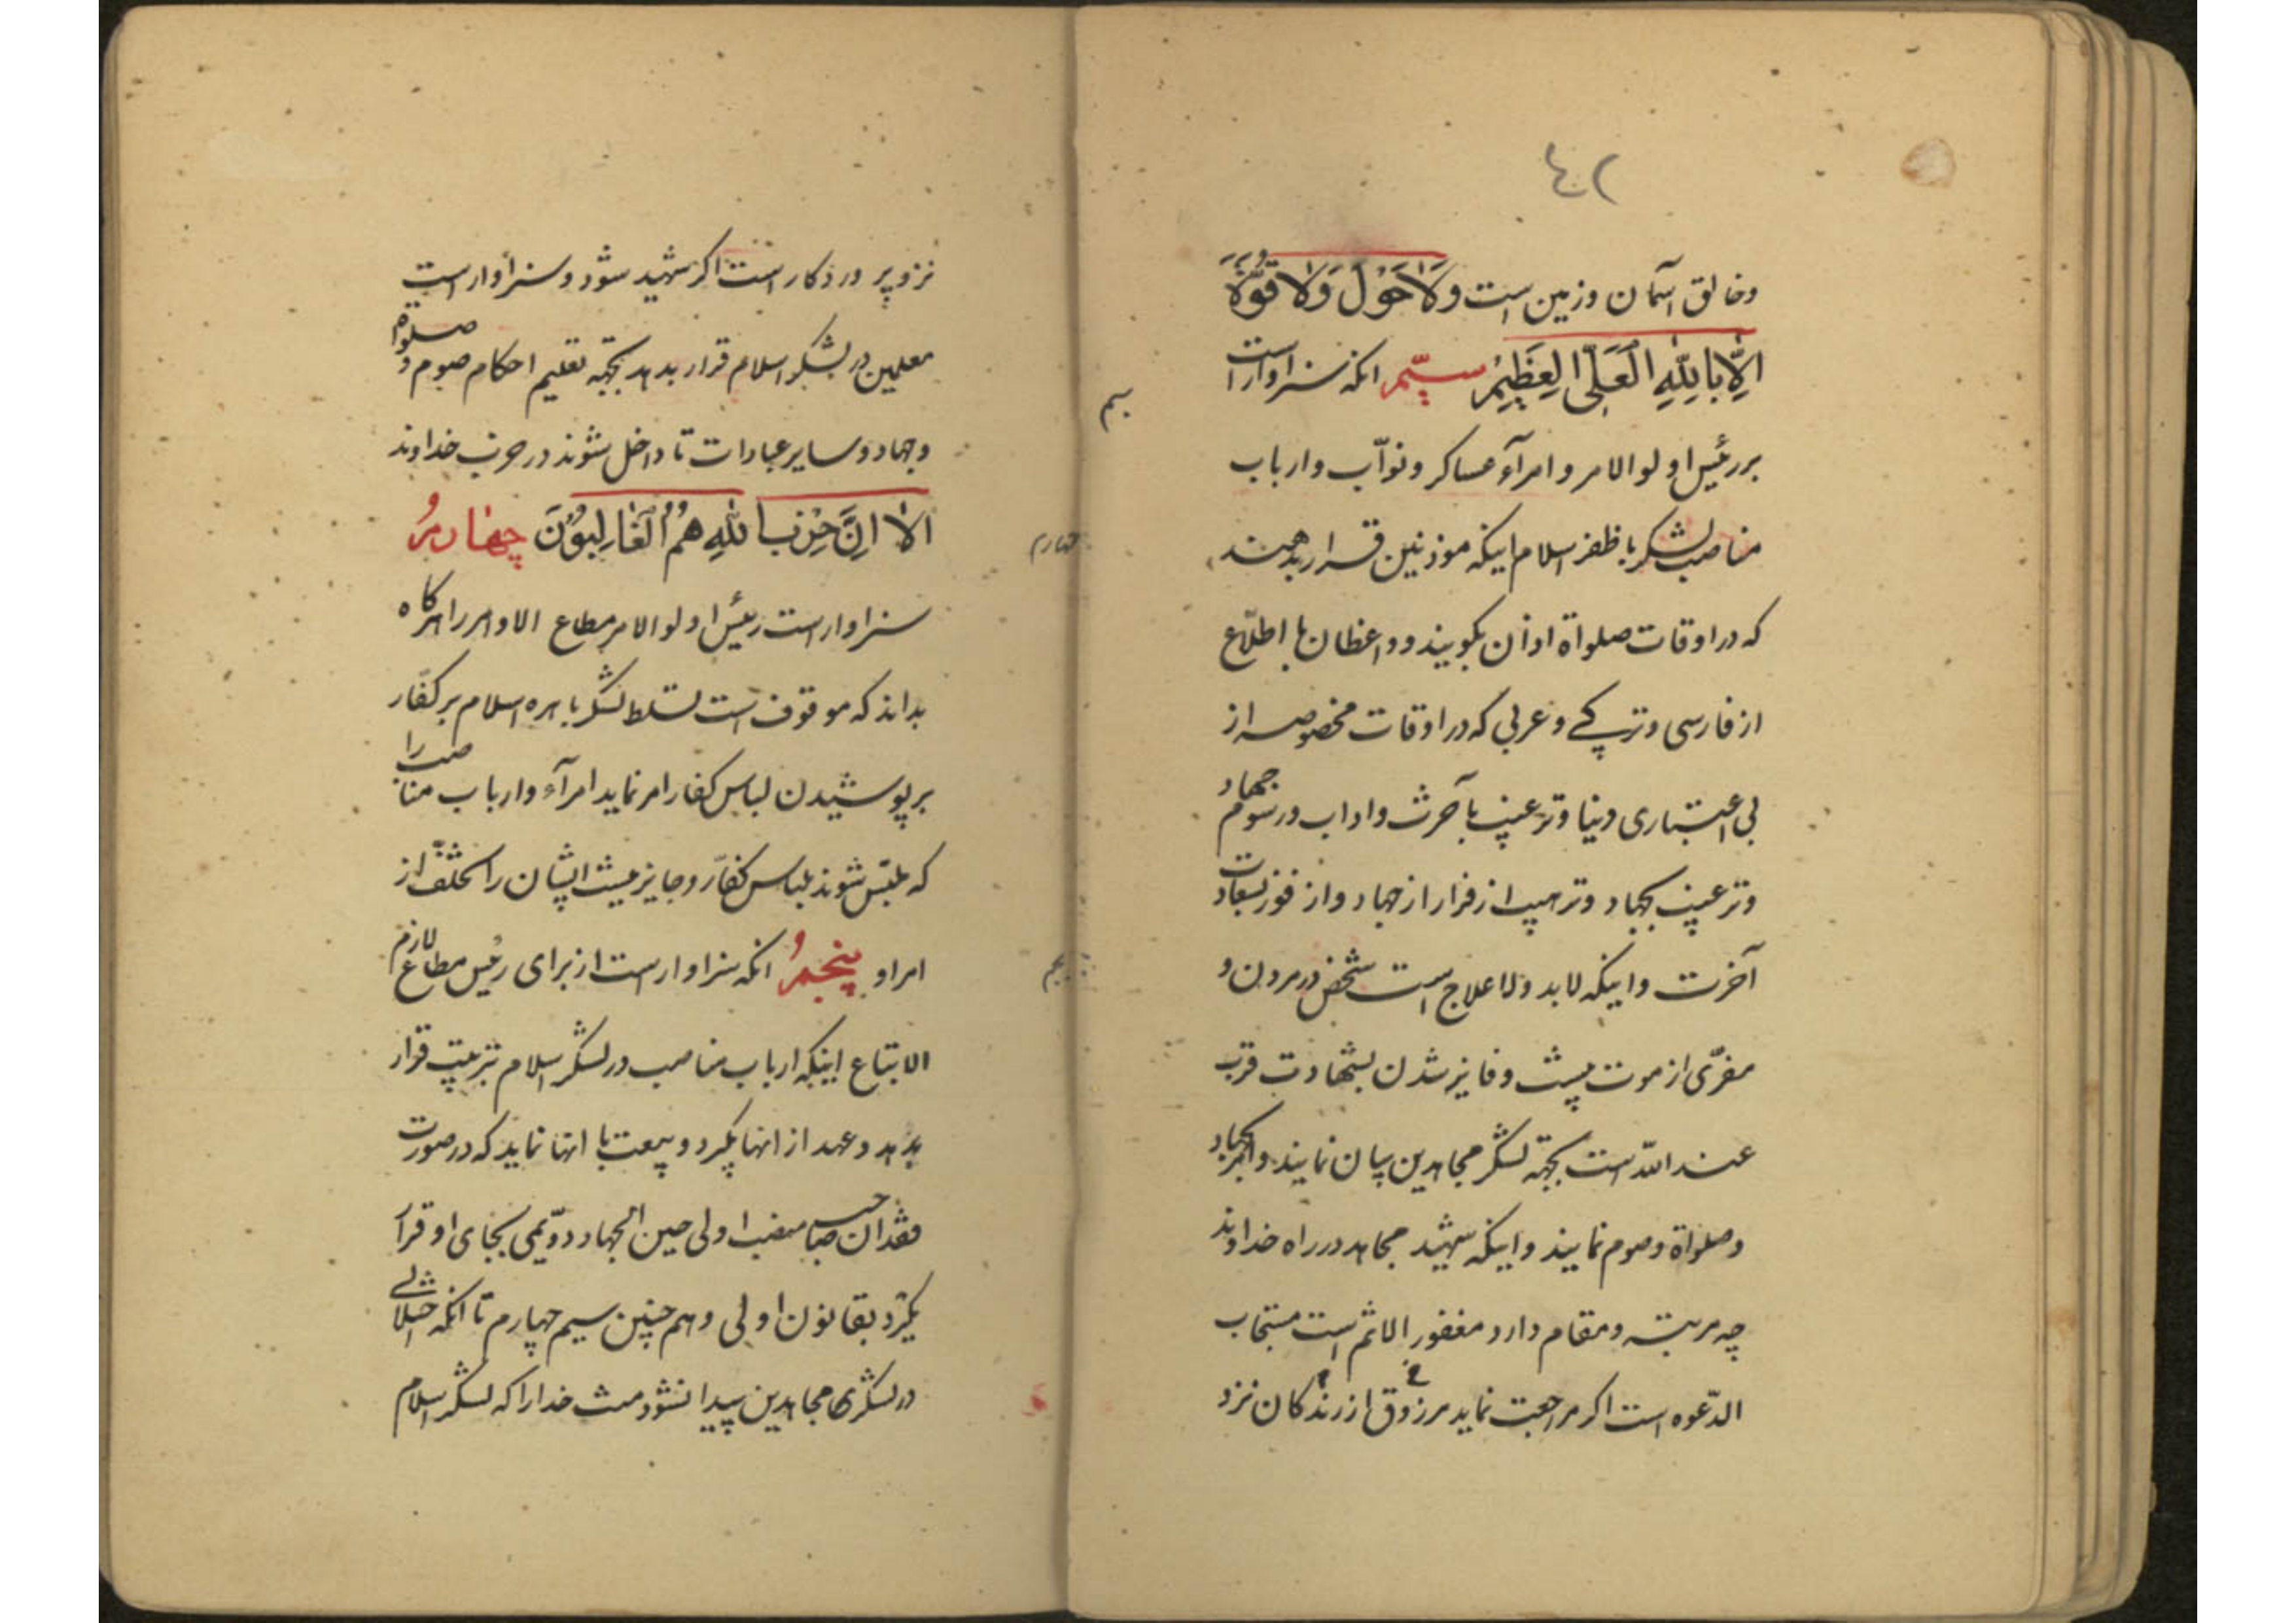 ٤٢
وخالق آسمان وزمین است وَلَا حَوْلَ وَلَا قُوَّةَ
اِلّا بِاللّهِ العَلِیِّ العَظِیْمِ سیّم انکه سزاوار است
سیم
بر رئیس اولوالامر و امرآء عساکر ونوّاب وارباب
مناصب لشکر با ظفر اسلام اینکه موذنین قرار بدهند
که در اوقات صلواة اذان بگویند و واعظان با اطلّاع
از فارسی وترکی وعربی که در اوقات مخصوصه از
بی اعتباری دنیا وترغیب بآخرت واداب ورسوم جهاد
وترغیب بجهاد وترهیب از فرار از جهاد واز فوز بسعادت
آخرت واینکه لابد ولاعلاج است شخص در مردن و
مفرّی از موت نیست وفایز شدن بشهادت قرب
عند اللّه است بجهة لشکر مجاهدین بیان نمایند وامر بجهاد
وصلواة وصوم نمایند واینکه شهید مجاهد در راه خداوند
چه مرتبه ومقام دارد مغفور الاثم است مستجاب
الدّعوه است اکر مراجعت نماید مرزوق از زندکان نزد
نزد پروردکار است اکر شهید شود وسزاوار است
معلمین در لشکر اسلام قرار بدهد بجهة تعلیم احکام صوم و صلوة
وجهاد وسایر عبادات تا داخل شوند در حزب خداوند
اَلا اِنَّ حِزْبَ اللهِ هُمُ الْغَالِبُوْنَ چهارم
چهارم
سزاوار است رئیس اولوالامر مطاع الاوامر را هرکاه
بداند که موقوف است تسلط لشکر باهره اسلام بر کفّار
بر پوشیدن لباس کفار امر نماید امرآء وارباب مناصب را
که ملبّس شوند بلباس کفّار وجایز نیست ایشان را تخلّف از
امر او پنجم انکه سزاوار است از برای رئیس مطاع لازم
پنجم
الاتباع اینکه ارباب مناصب در لشکر اسلام بترتیب قرار
بدهد وعهد از انها بگیرد وبیعت با انها نماید که در صورت
فقدان صاحب منصب اولی حین الجهاد دوّیمی بجای او قرار
بگیرد بقانون اولی وهم چنین سیم چهارم تا انکه اختلالی
در لشکری مجاهدین پیدا نشود منت خدا را که لشکر اسلام